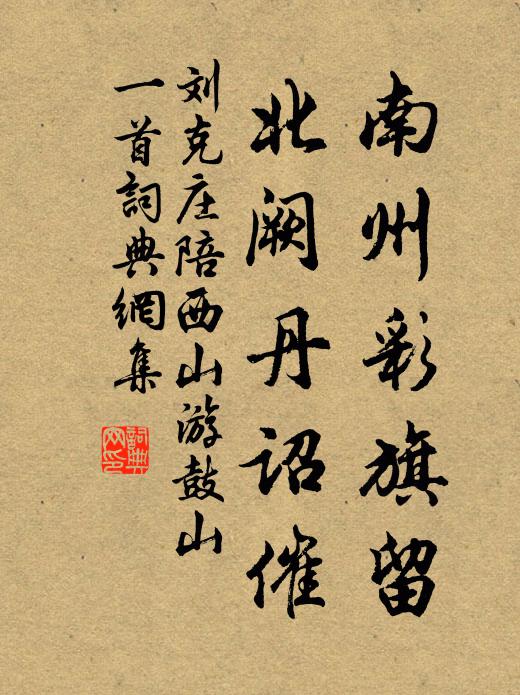 南州彩旗留
北阙丹诏催
刘克庄陪西山游鼓山
一首詞典網集
詞典网印